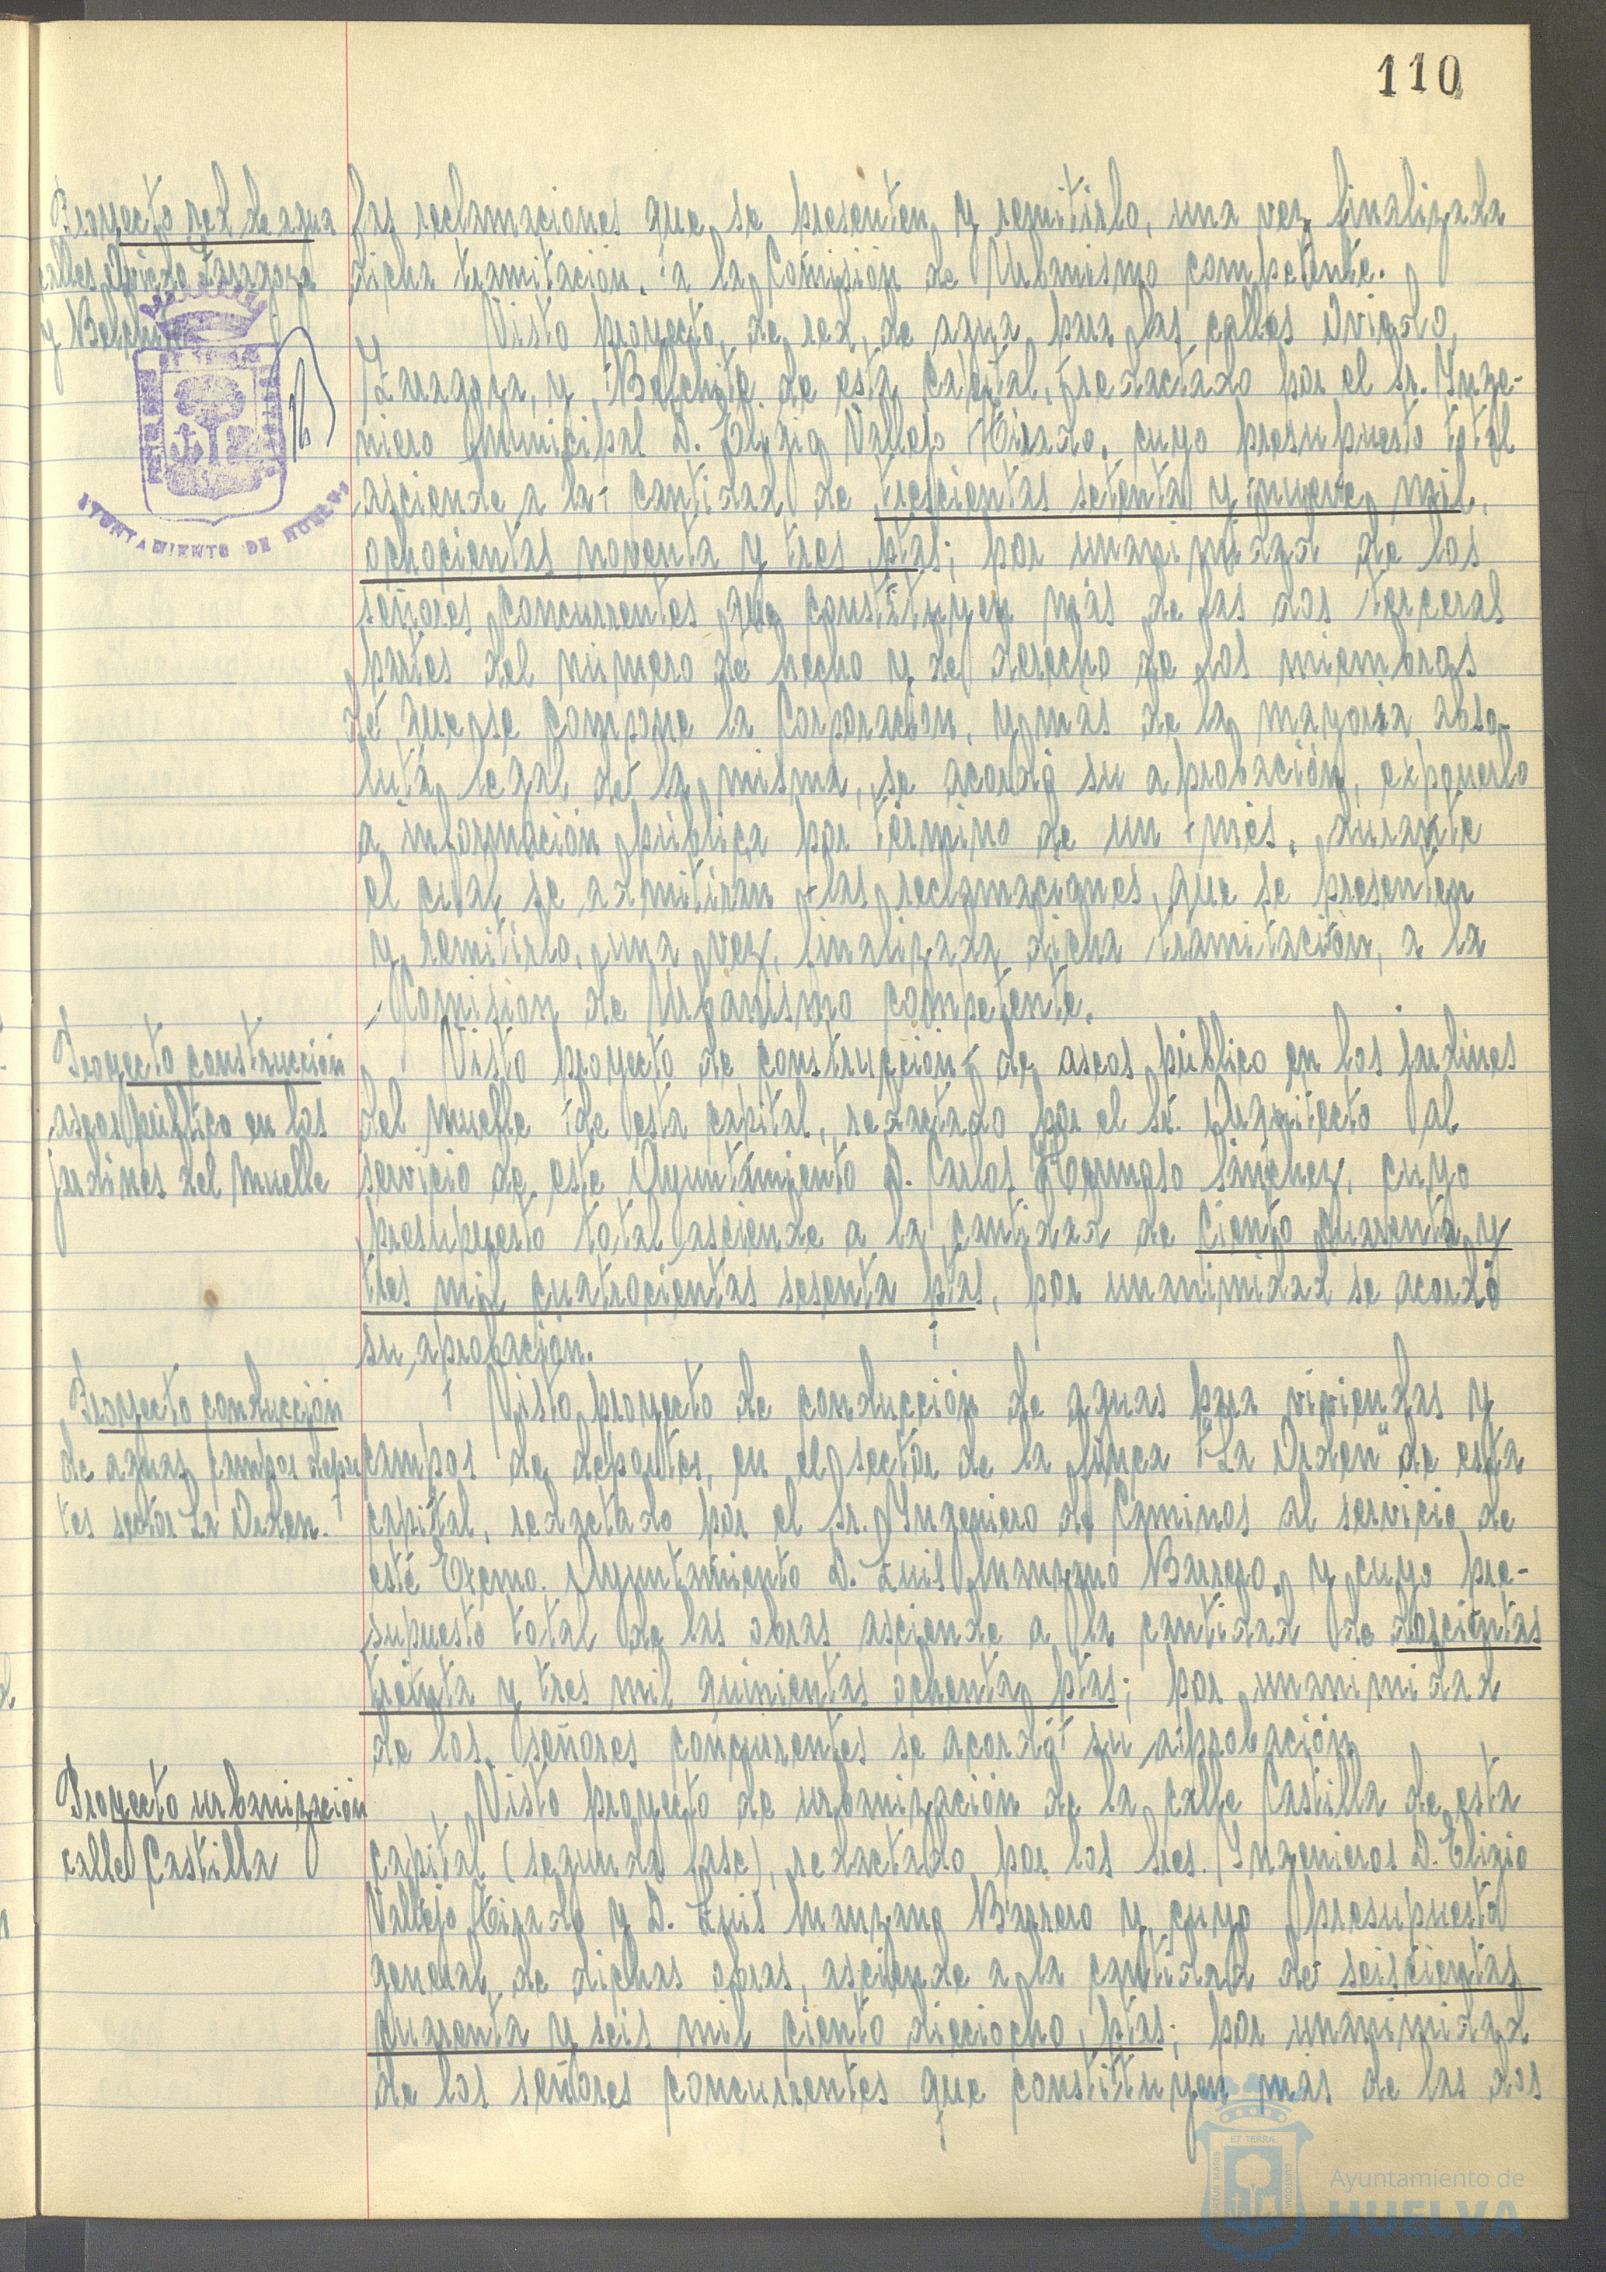 110
Proyecto red de agua
calles Oviedo Zaragoza
y Belchite
las reclamaciones que se presenten y remitirlo, una vez finalizada
dicha tramitación, a la Comisión de Urbanismo competente.
Visto proyecto de red de agua para las calles Oviedo,
Zaragoza, y Belchite de esta capital, redactado por el Sr. Inge-
niero Municipal D. Eligio Vallejo Tirado, cuyo presupuesto total
asciende a la cantidad de trescientas setenta y nueve mil
ochocientas noventa y tres ptas; por unanimidad de los
señores concurrentes que constituyen más de las dos terceras
partes del número de hecho y de derecho de los miembros
de que se compone la Corporación, y más de la mayoria abso-
luta legal de la misma, se acordó su aprobación, exponerlo
a información pública por término de un mes, durante
el cual se admitirán las reclamaciones que se presenten
y remitirlo, una vez finalizada dicha tramitación, a la
Comisión de Urbanismo competente.
Proyecto construcción
aseos público en los
jardines del Muelle
Visto proyecto de construcción de aseos público en los jardines
del Muelle de esta capital, redactado por el Sr. Arquitecto al
servicio de este Ayuntamiento D. Carlos Hermoso Sánchez, cuyo
presupuesto total asciende a la cantidad de ciento cuarenta y
tres mil cuatrocientas sesenta ptas, por unanimidad se acordó
su aprobación.
Proyecto conducción
de aguas campos depor
tes sector La Orden.
Visto proyecto de conducción de aguas para viviendas y
campos de deportes, en el sector de la finca "La Orden" de esta
capital, redactado por el Sr. Ingeniero de Caminos al servicio de
este Excmo. Ayuntamiento D. Luis Manzano Barrero, y cuyo pre-
supuesto total de las obras asciende a la cantidad de doscientas
treinta y tres mil quinientas ochenta ptas; por unanimidad
de los señores concurrentes se acordó su aprobación
Proyecto urbanización
calle Castilla
Visto proyecto de urbanización de la calle Castilla de esta
capital (segunda fase), redactado por los Sres. Ingenieros D. Eligio
Vallejo Tirado y D. Luis Manzano Barrero y cuyo presupuesto
general de dichas obras, asciende a la cantidad de seiscientas
cuarenta y seis mil ciento dieciocho ptas; por unanimidad
de los señores concurrentes que constituyen más de las dos
AYUNTAMIENTO DE HUELVA
Ayuntamiento de
HUELVA